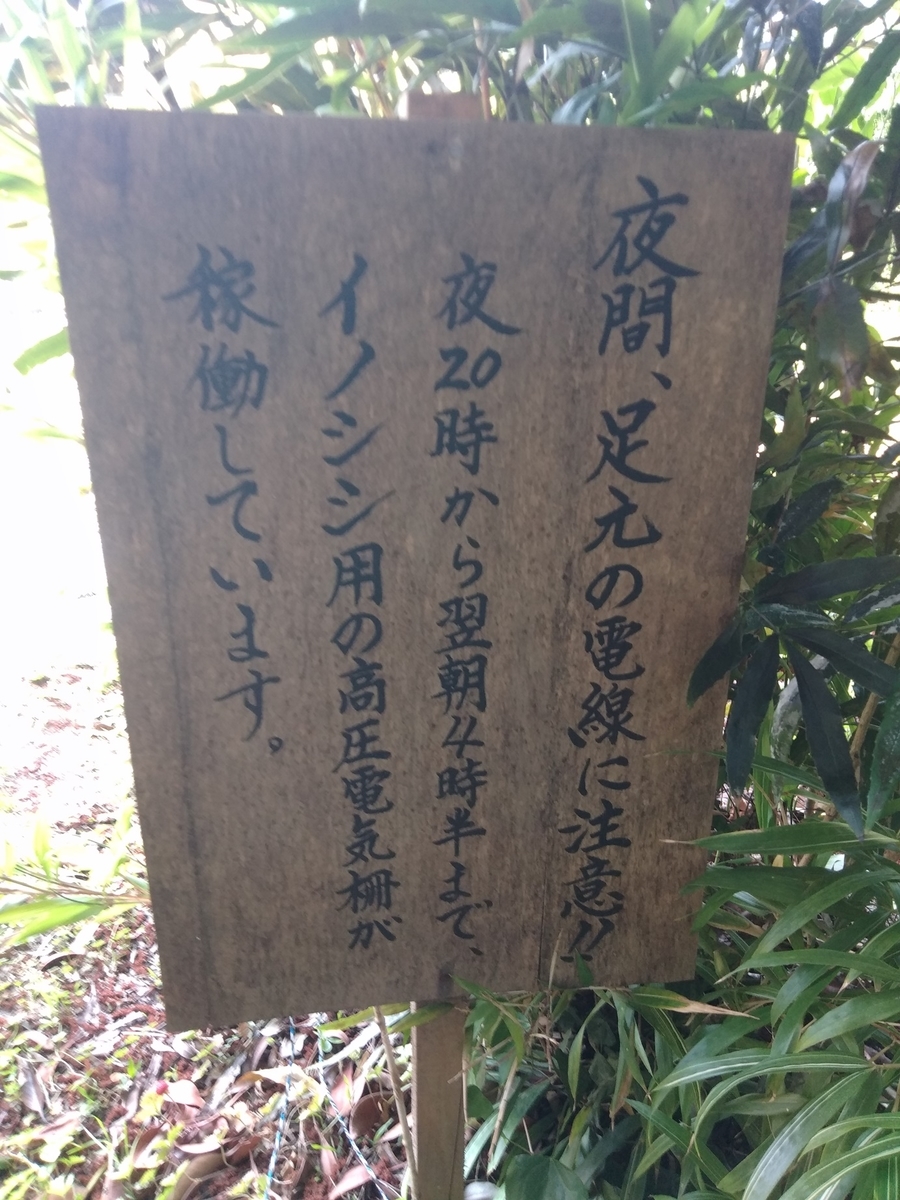 夜間、足元の電線に注意!!
夜20時から翌朝4時半まで、
イノシシ用の高圧電気柵が
稼働しています。